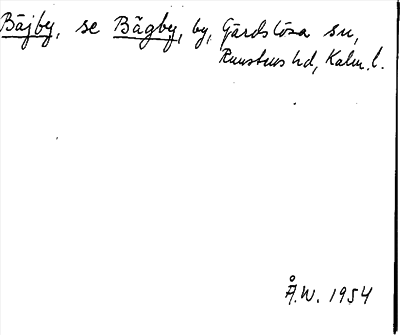 Bäjby, se Bägby, by, Gärdslösa sn,
Runstens hd, Kalm. l.
Å.W. 1954